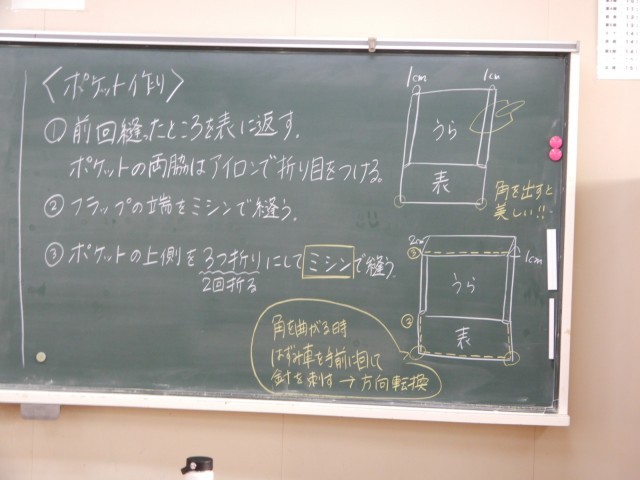 〈ポケット作り〉
① 前回縫ったところを表に返す.
ポケットの両脇はアイロンで折り目をつける。
② フラップの端をミシンで縫う.
③ ポケットの上側を3つ折りにしてミシンで縫う.
2回折る
角を曲がる時
はずみ車を手前に回して
針を刺す → 方向転換
1cm 1cm
うら
表
角を出すと
美しい!!
2cm
③
1cm
うら
②
表